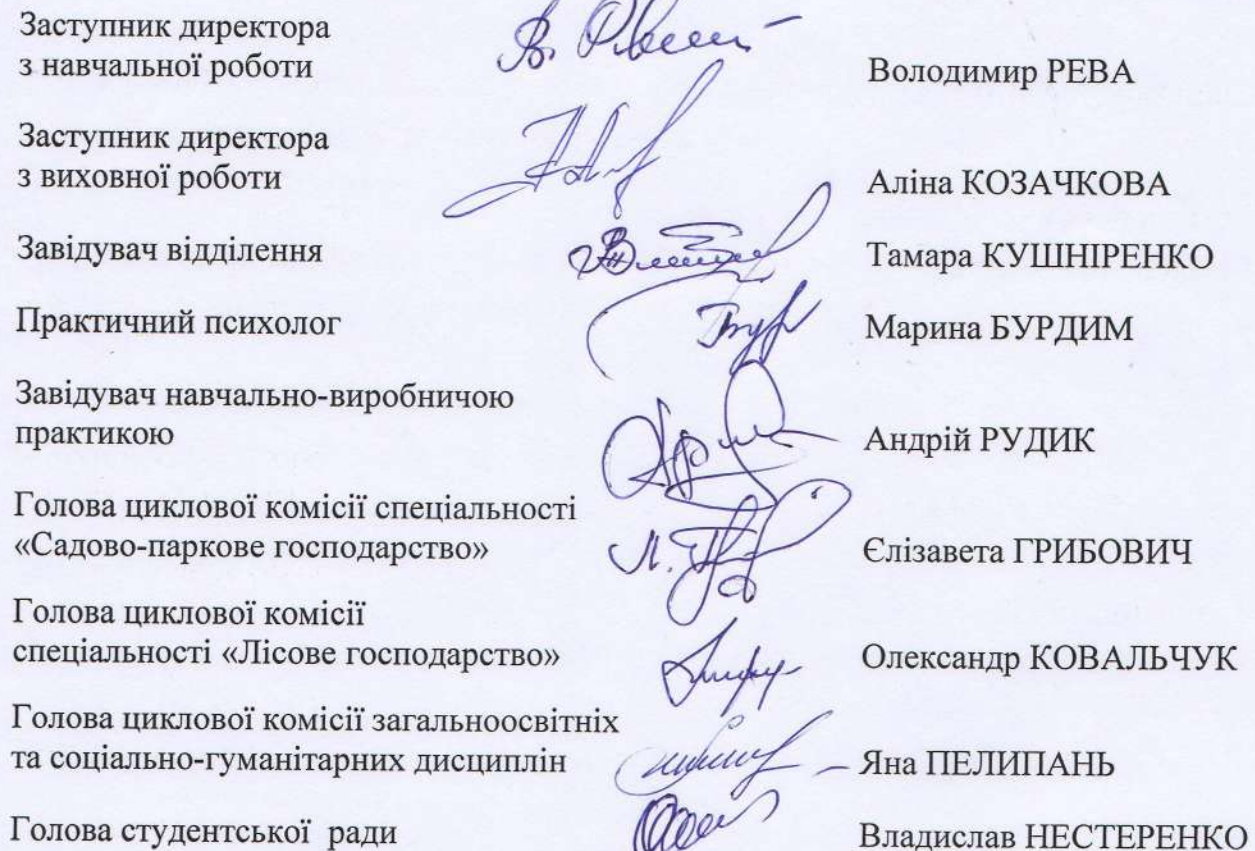 Заступник директора
з навчальної роботи
Володимир РЕВА
Заступник директора
з виховної роботи
Аліна КОЗАЧКОВА
Завідувач відділення
Тамара КУШНІРЕНКО
Практичний психолог
Марина БУРДИМ
Завідувач навчально-виробничою
практикою
Андрій РУДИК
Голова циклової комісії спеціальності
«Садово-паркове господарство»
Єлізавета ГРИБОВИЧ
Голова циклової комісії
спеціальності «Лісове господарство»
Олександр КОВАЛЬЧУК
Голова циклової комісії загальноосвітніх
та соціально-гуманітарних дисциплін
Яна ПЕЛИПАНЬ
Голова студентської ради
Владислав НЕСТЕРЕНКО